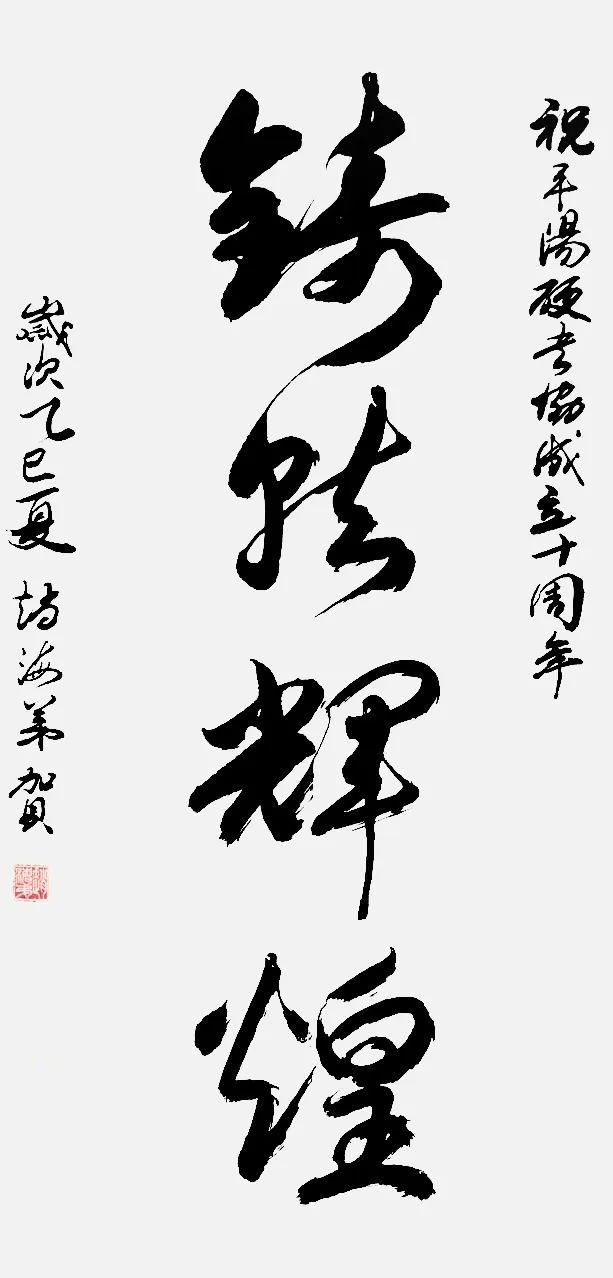 祝平陽硬书協成立十周年
鑄就輝煌
歲次乙巳夏 趙海弟賀